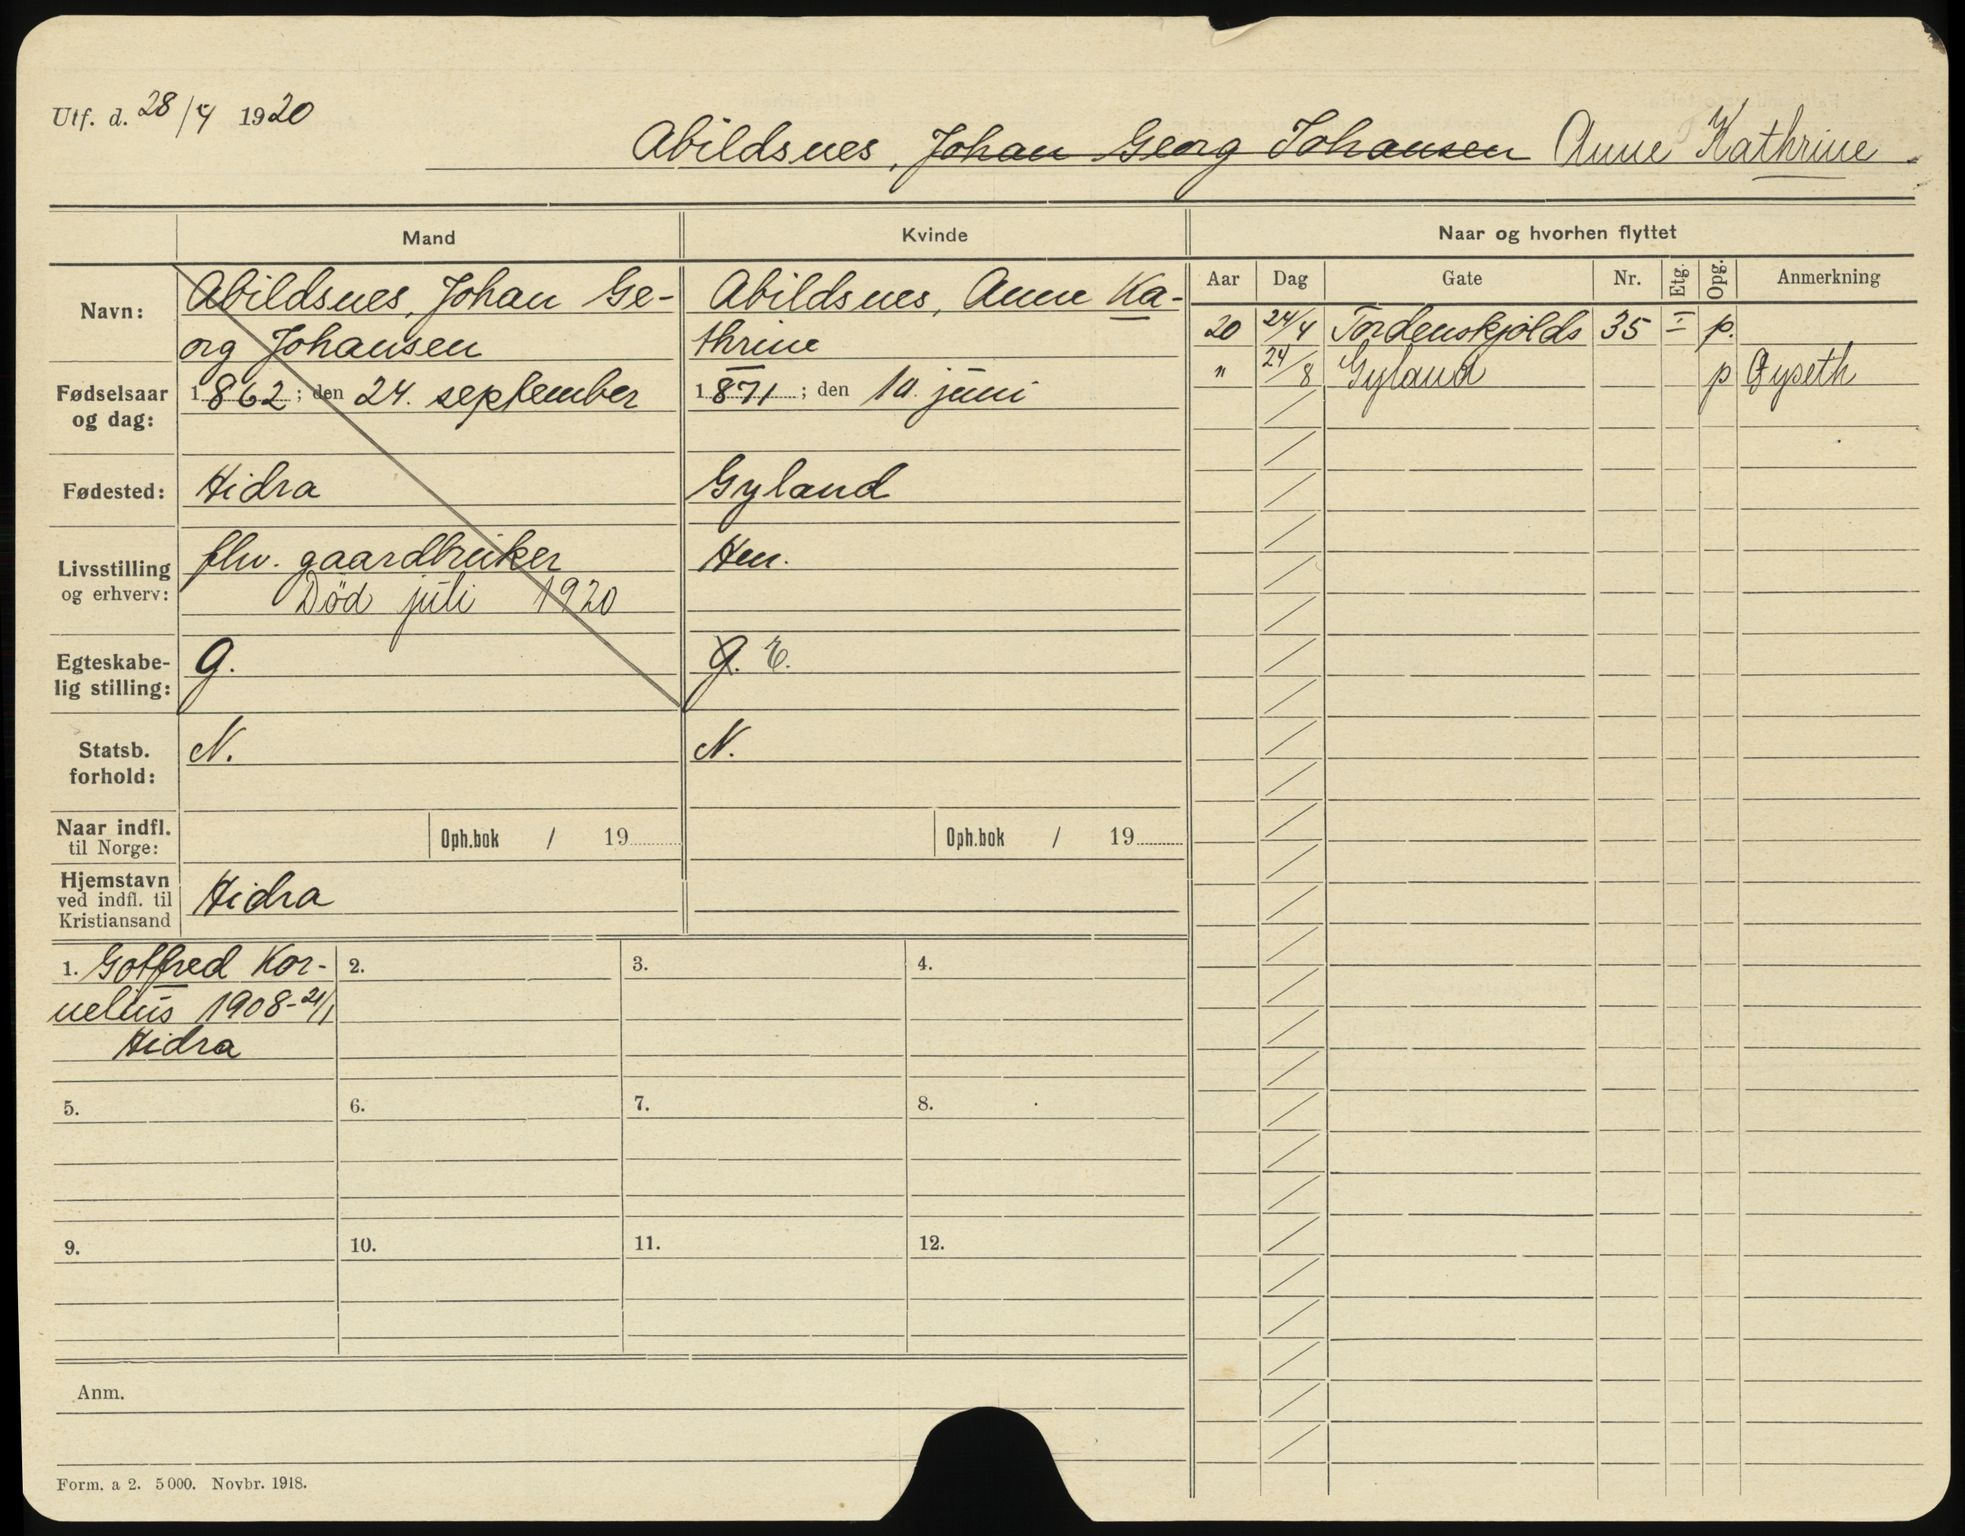 Utf. d. 28/4 1920
Abildsnes, Johan Georg Johansen Anne Kathrine
Mand
Kvinde
Naar og hvorhen flyttet
Aar Dag Gate Nr. Etg. Opg. Anmerkning
Navn:
Abildsnes, Johan Ge-
org Johansen
Abildsnes, Anne Ka-
thrine
20 24/4 Tordenskjolds 35 p.
" 24/8 Gyland p Øyseth
Fødselsaar
og dag:
1862; den 24. september
1871; den 10. juni
Fødested:
Hidra
Gyland
Livsstilling
og erhverv:
fhv. gaardbruker
Død juli 1920
Hm.
Egteskabe-
lig stilling:
g.
g. E.
Statsb.
forhold:
N.
N.
Naar indfl.
til Norge:
Oph.bok / 19
Oph.bok / 19
Hjemstavn
ved indfl. til
Kristiansand
Hidra
1. Gotfred Kor-
nelius 1908-21/1
Hidra
2.
3.
4.
5.
6.
7.
8.
9.
10.
11.
12.
Anm.
Form. a 2. 5000. Novbr. 1918.